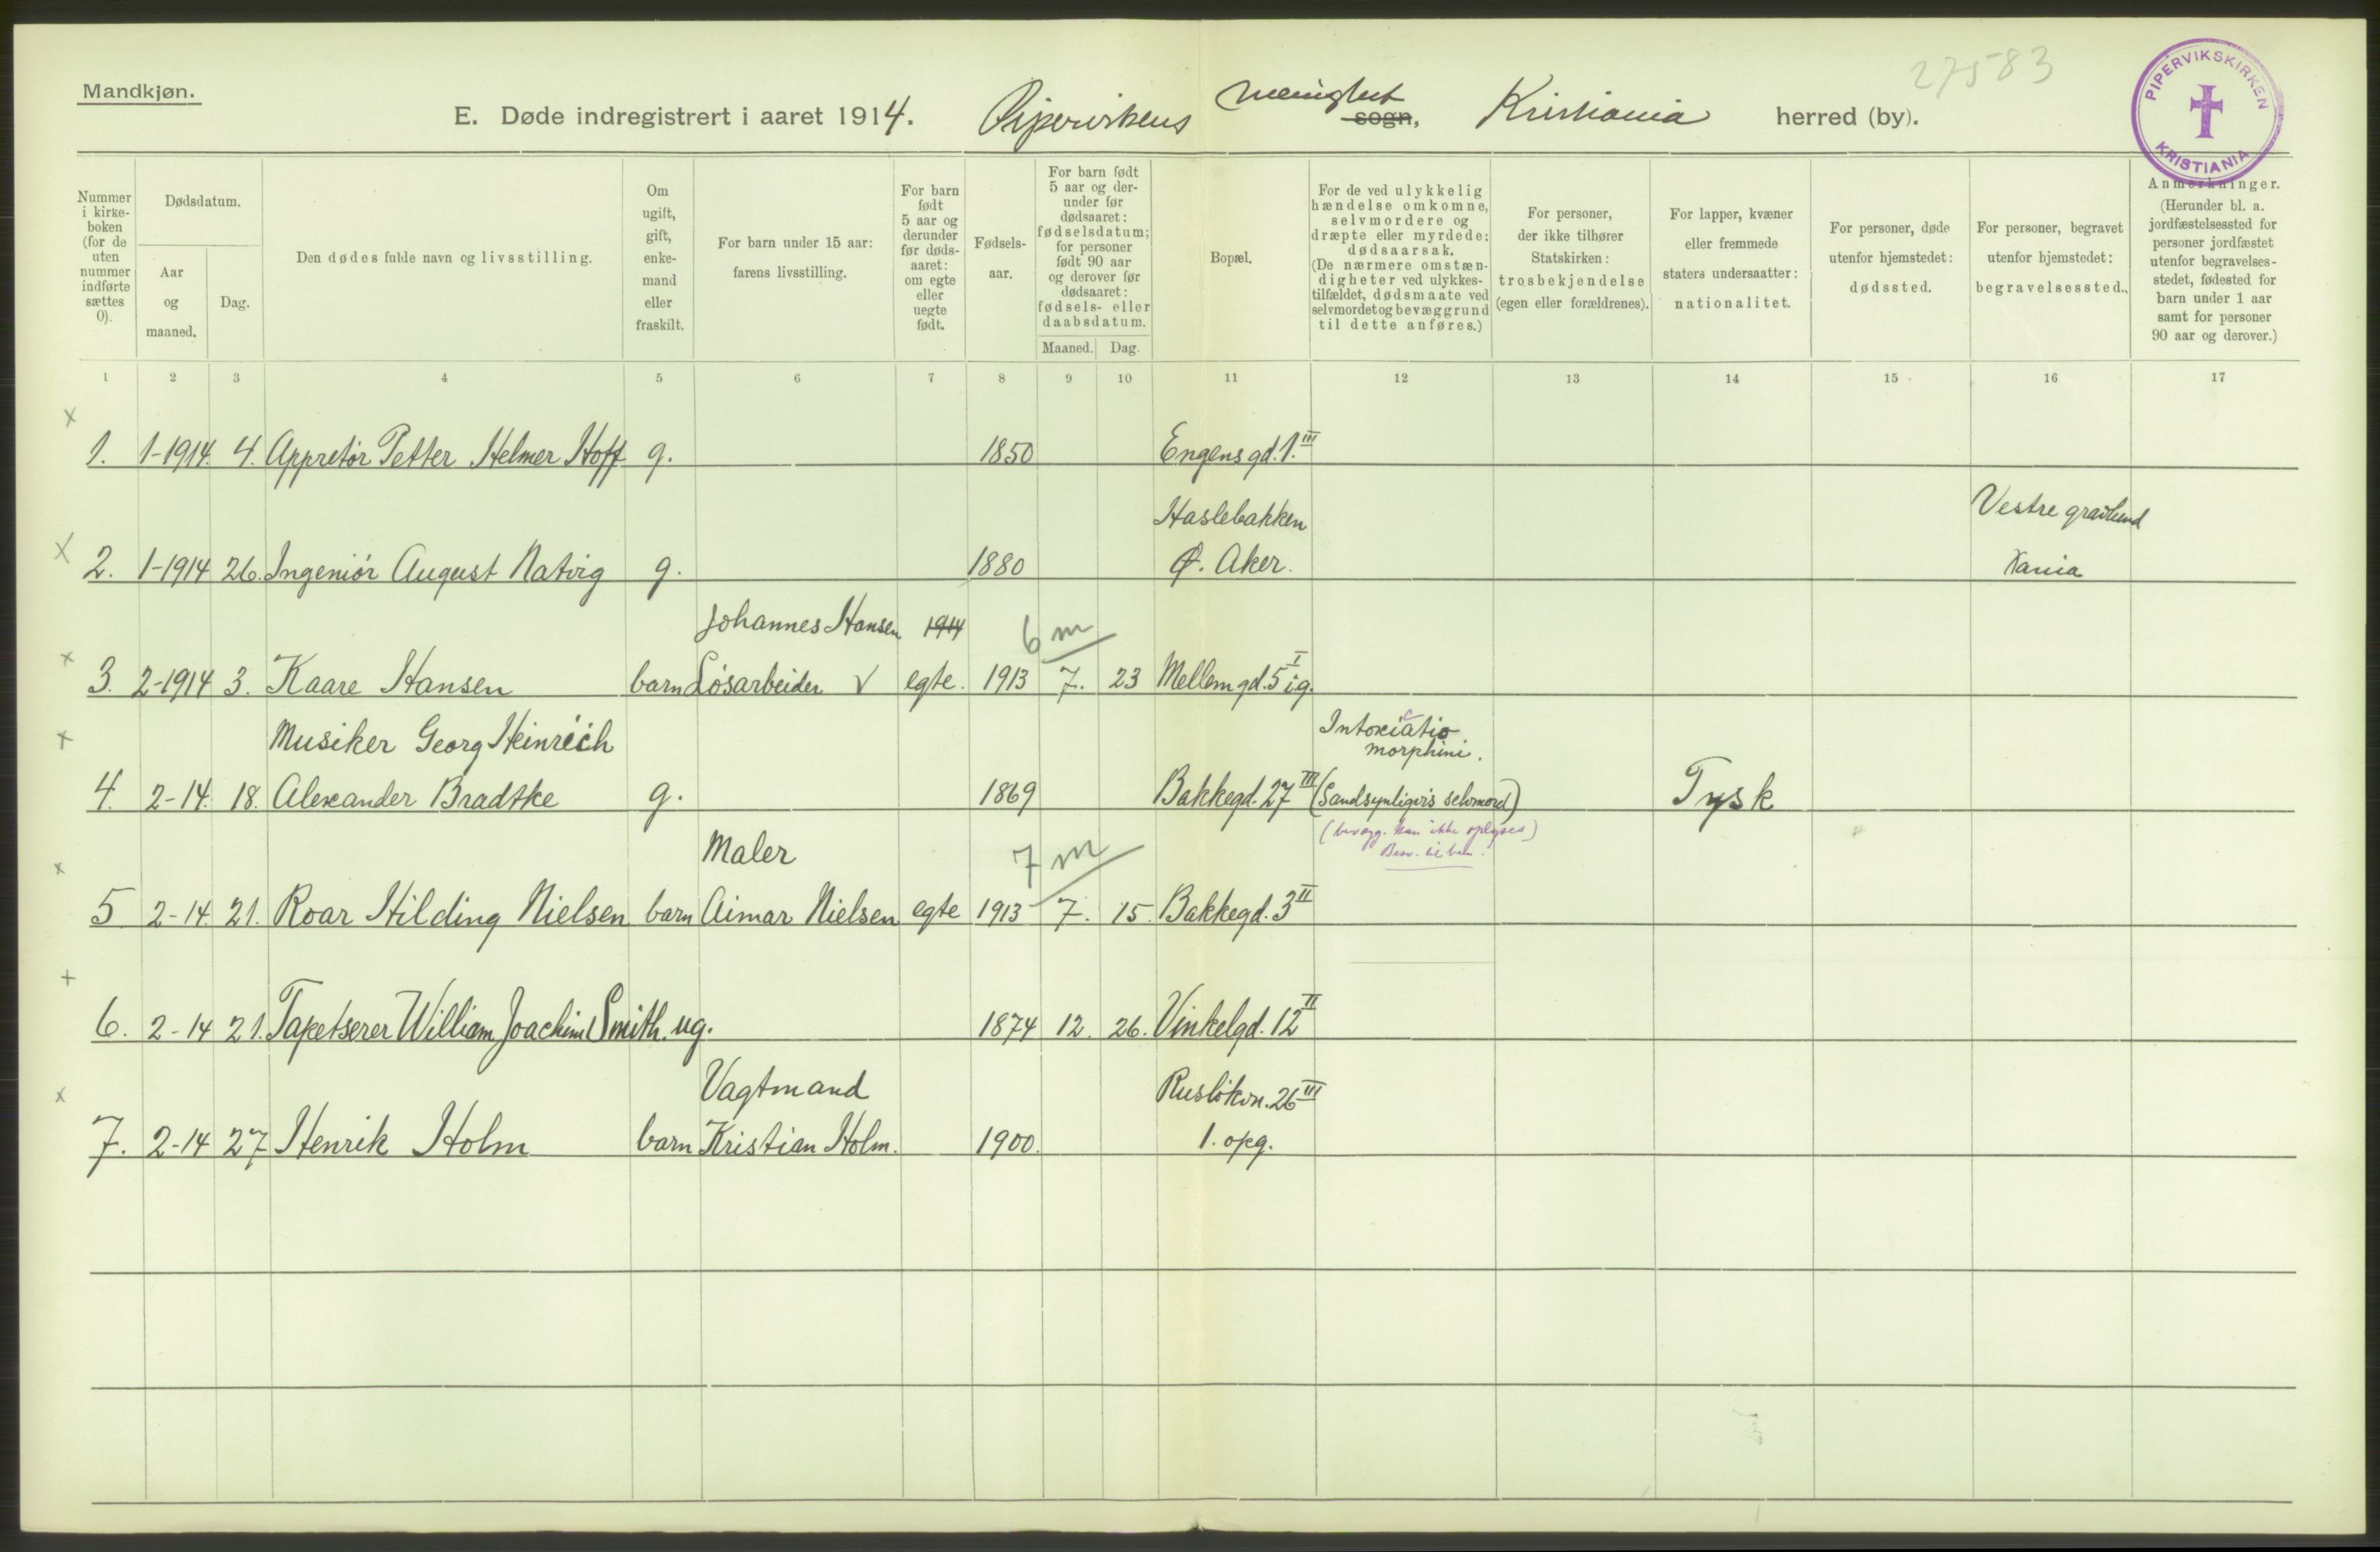 Mandkjøn.
27583
E. Døde indregistrert i aaret 1914. Pipervikens menighet sogn, Kristiania herred (by).
PIPERVIKSKIRKEN KRISTIANIA
Nummer i kirke-boken (for de uten nummer indførte sættes 0).
Dødsdatum.
Aar og maaned.
Dag.
Den dødes fulde navn og livsstilling.
Om ugift, gift, enke-mand eller fraskilt.
For barn under 15 aar: farens livsstilling.
For barn født 5 aar og derunder før døds-aaret: om egte eller uegte født.
Fødsels-aar.
For barn født 5 aar og der-under før dødsaaret: fødselsdatum; for personer født 90 aar og derover før dødsaaret: fødsels- eller daabsdatum.
Maaned. Dag.
Bopæl.
For de ved ulykkelig hændelse omkomne, selvmordere og dræpte eller myrdede: dødsaarsak. (De nærmere omstæn-digheter ved ulykkes-tilfældet, dødsmaate ved selvmordet og bevæggrund til dette anføres.)
For personer, der ikke tilhører Statskirken: trosbekjendelse (egen eller forældrenes).
For lapper, kvæner eller fremmede staters undersaatter: nationalitet.
For personer, døde utenfor hjemstedet: dødssted.
For personer, begravet utenfor hjemstedet: begravelsessted.
Anmerkninger. (Herunder bl. a. jordfæstelsessted for personer jordfæstet utenfor begravelses-stedet, fødested for barn under 1 aar samt for personer 90 aar og derover.)
1 2 3 4 5 6 7 8 9 10 11 12 13 14 15 16 17
x
1. 1-1914. 4. Appretør Petter Helmer Hoff g. 1850 Engensgd. 1. III
Haslebakken Vestre gravlund
x
2. 1-1914 26. Ingeniør August Natvig g. 1880 Ø. Aker. Kania
Johannes Hansen 1914 6 m
x
3. 2-1914 3. Kaare Hansen barn Løsarbeider v egte. 1913 7. 23 Mellemgd. 5 I i.g.
x
Musiker Georg Heinrich Intoxicatio
morphini.
4. 2-14. 18. Alexander Bradtke g. 1869 Bakkegd. 27 III (Sandsynligvis selvmord) Tysk
(bevægg. kan ikke oplyses)
Maler 7 m
x
5 2-14. 21. Roar Hilding Nielsen barn Aimar Nielsen egte 1913 7. 15. Bakkegd. 3 II
+
6. 2-14 21. Tapetserer William Joachim Smith. ug. 1874 12. 26. Vinkelgd. 12 II
Vagtmand Rusløkvn. 26 III
x
7. 2-14 27 Henrik Holm barn Kristian Holm. 1900. 1. opg.